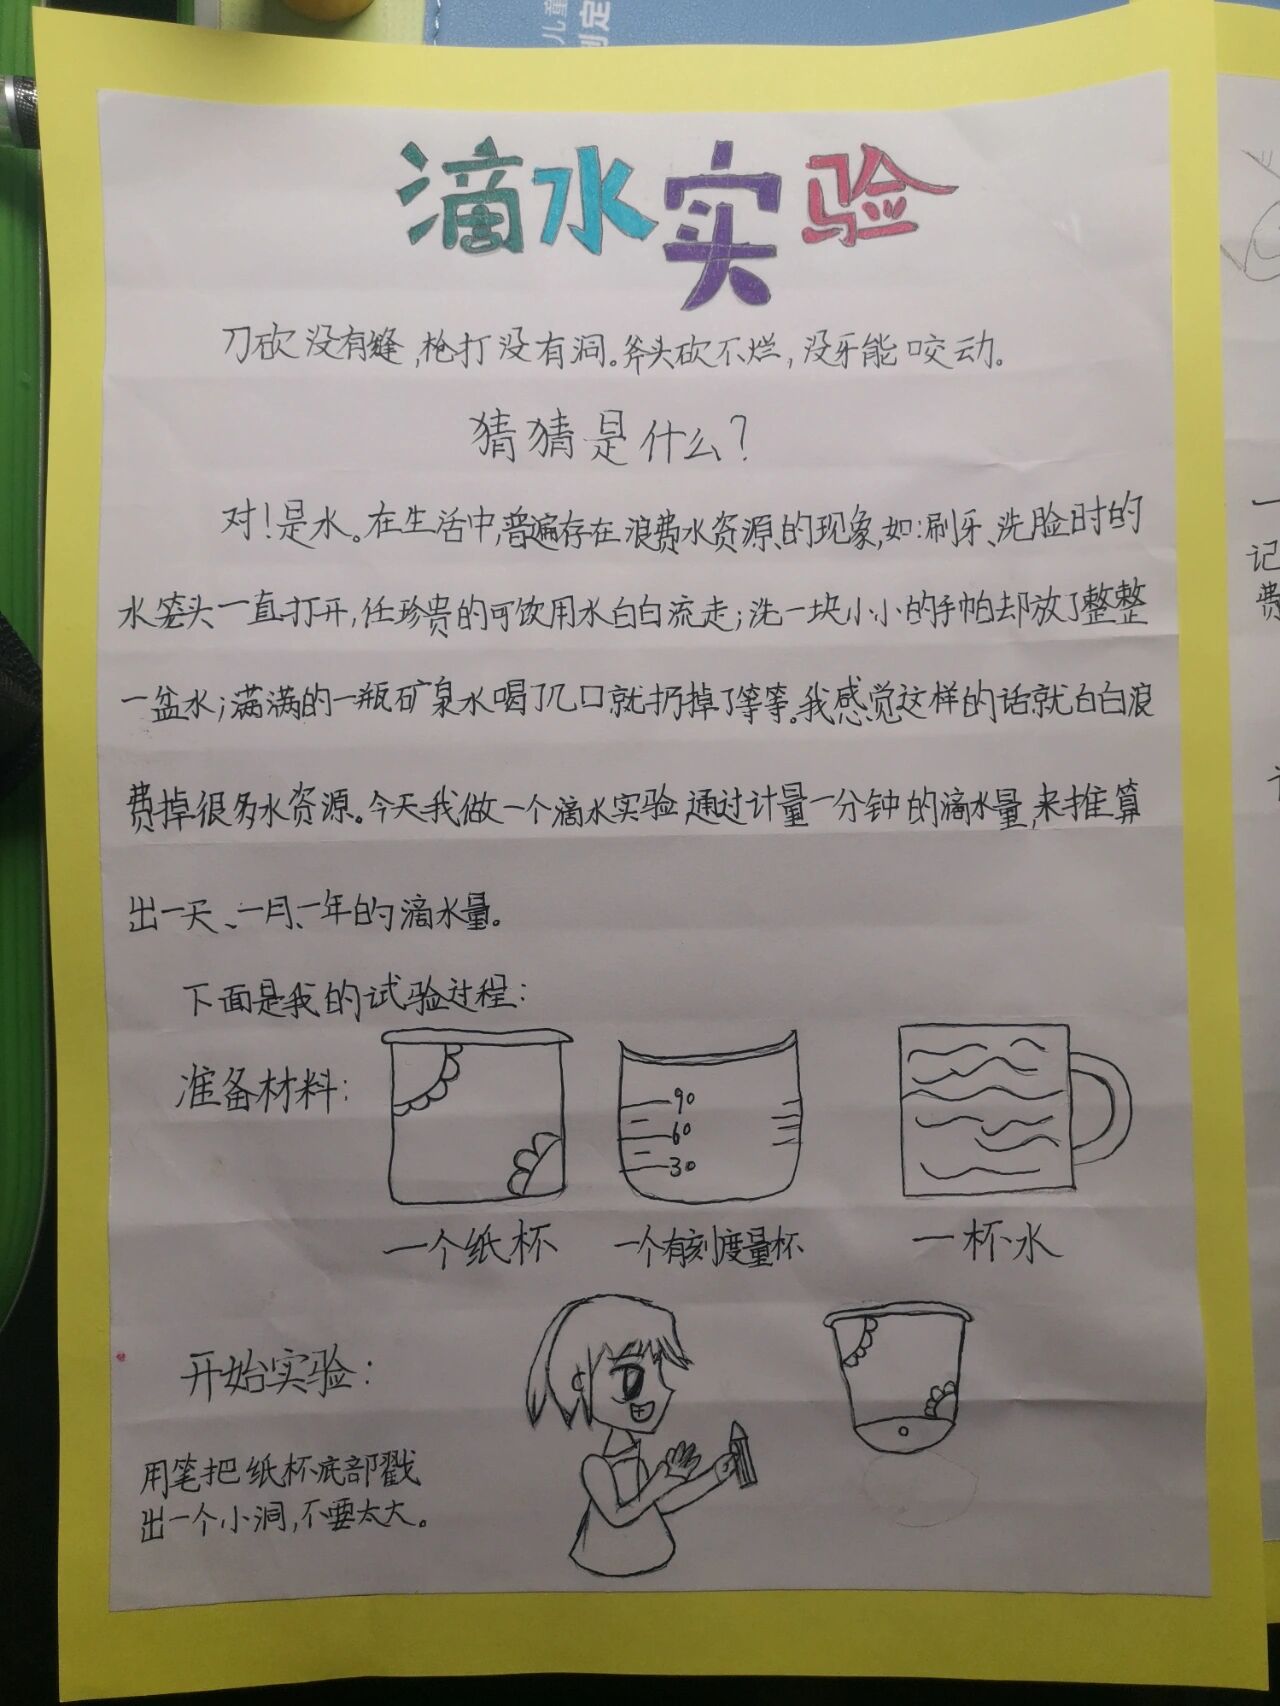 儿童
制定
滴水实验
刀砍没有缝,枪打没有洞。斧头砍不烂,没牙能咬动。
猜猜是什么?
对!是水。在生活中,普遍存在浪费水资源的现象,如:刷牙、洗脸时的
水笼头一直打开,任珍贵的可饮用水白白流走;洗一块小小的手帕却放了整整
一盆水;满满的一瓶矿泉水喝了几口就扔掉了等等。我感觉这样的话就白白浪
费掉很多水资源。今天我做一个滴水实验通过计量一分钟的滴水量,来推算
出一天、一月、一年的滴水量。
下面是我的试验过程:
准备材料:
90
60
30
一个纸杯 一个有刻度量杯 一杯水
开始实验:
用笔把纸杯底部戳
出一个小洞,不要太大。
一
记
费